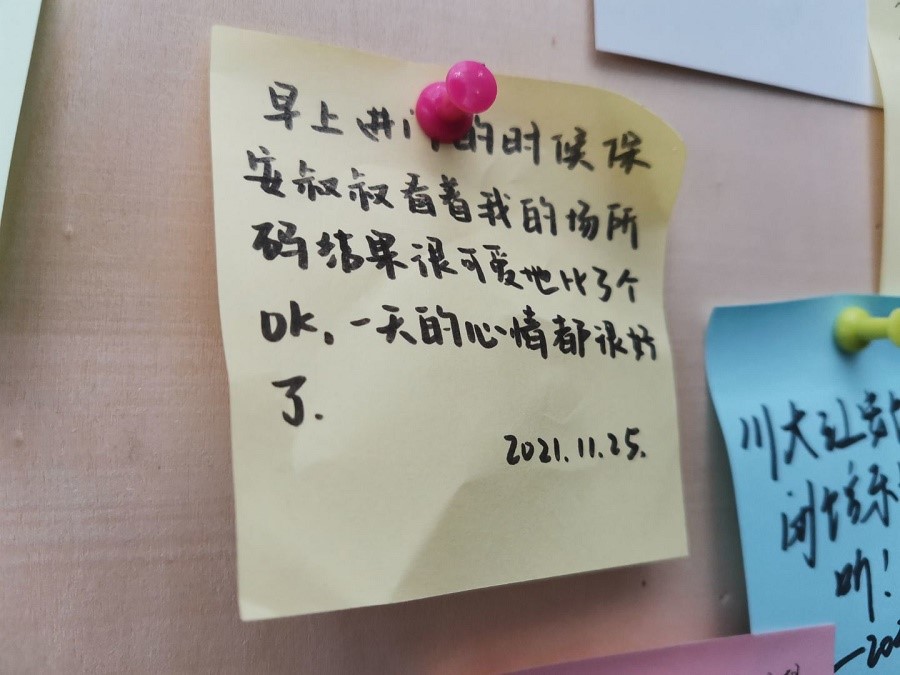 早上进门的时候保
安叔叔看着我的场所
码结果很可爱地比了个
OK,一天的心情都很好
了.
2021.11.25.
川大让
听!